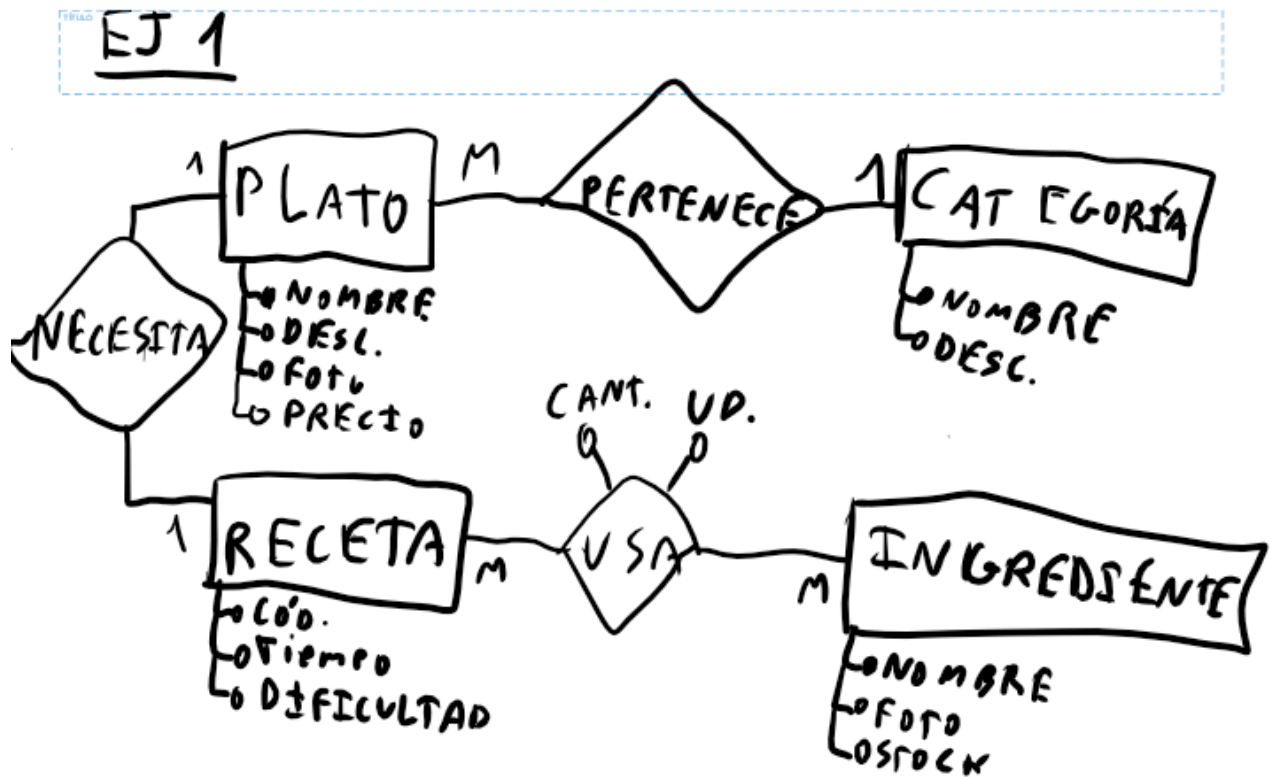 TÍTULO
EJ 1
1
PLATO
M
PERTENECE
1
CATEGORÍA
NOMBRE
DESC.
FOTO
PRECIO
NOMBRE
DESC.
NECESITA
CANT. UD.
1
RECETA
M
USA
M
INGREDIENTE
CÓD.
Tiempo
DIFICULTAD
NOMBRE
FOTO
STOCK